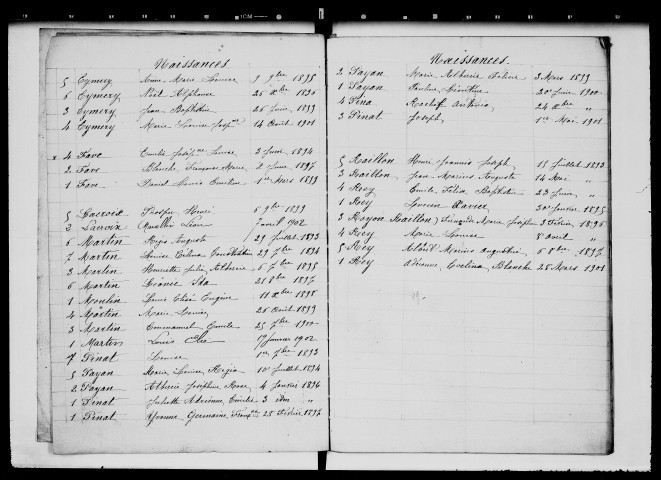 Naissances
5 Eymery Anne Marie Louise 9 9bre 1895
6 Eymery Noël Alphonse 25 Xbre 1896
3 Eymery Jean Baptistin 26 Juin 1899
4 Eymery Marie Louise Josephne 14 Août 1901
x 4 Fave Emilie Joséphine Louise 3 Juin 1894
2 Fave Blanche Françoise Marie 2 Juin 1897
1 Fave Daniel Louis Emilien 1er Mars 1899
5 Lacroix Prosper Henri 6 9bre 1899
2 Lacroix Léon 9 avril 1902
6 Martin Régis Auguste 29 Juillet 1893
7 Martin Louise Célina 29 7bre 1894
3 Martin Henriette Julie 6 7bre 1895
6 Martin Léonce Ida 21 8bre 1897
1 Moulin Louis Elisé Eugène 11 Xbre 1898
4 Martin Marie Louise 28 Août 1899
3 Martin Emmanuel Emile 25 7bre 1900
1 Martin Louis Elie Janvier 1902
7 Pinat Louise 1er 7bre 1893
5 Payan Marie Louise 10 Juillet 1894
2 Payan Albérie Joséphine Rose 4 Janvier 1896
1 Pinat Juliette Adrienne Emilie 3 "
1 Pinat Yvonne Germaine 25 Février 1897
Naissances.
2 Payan Marie 3 Mars 1899
1 Payan Pauline 20 Juin 1900
4 Pina 24 Xbre "
3 Pinat Joseph 1er Mai 1901
5 Raillon Joseph 18 Juillet 1893
3 Raillon Jean Marius Auguste 14 Mai "
4 Rey Emile Félix Baptistin 23 Juin "
1 Rey Xavier 30 Janvier 1895
3 Raillon Marie Joséphine 3 Février 1896
4 Rey Marie Louise 8 avril "
5 Rey Marius Augustin 6 8bre 1897
1 Rey Adrienne Evelina Blanche 25 Mars 1901